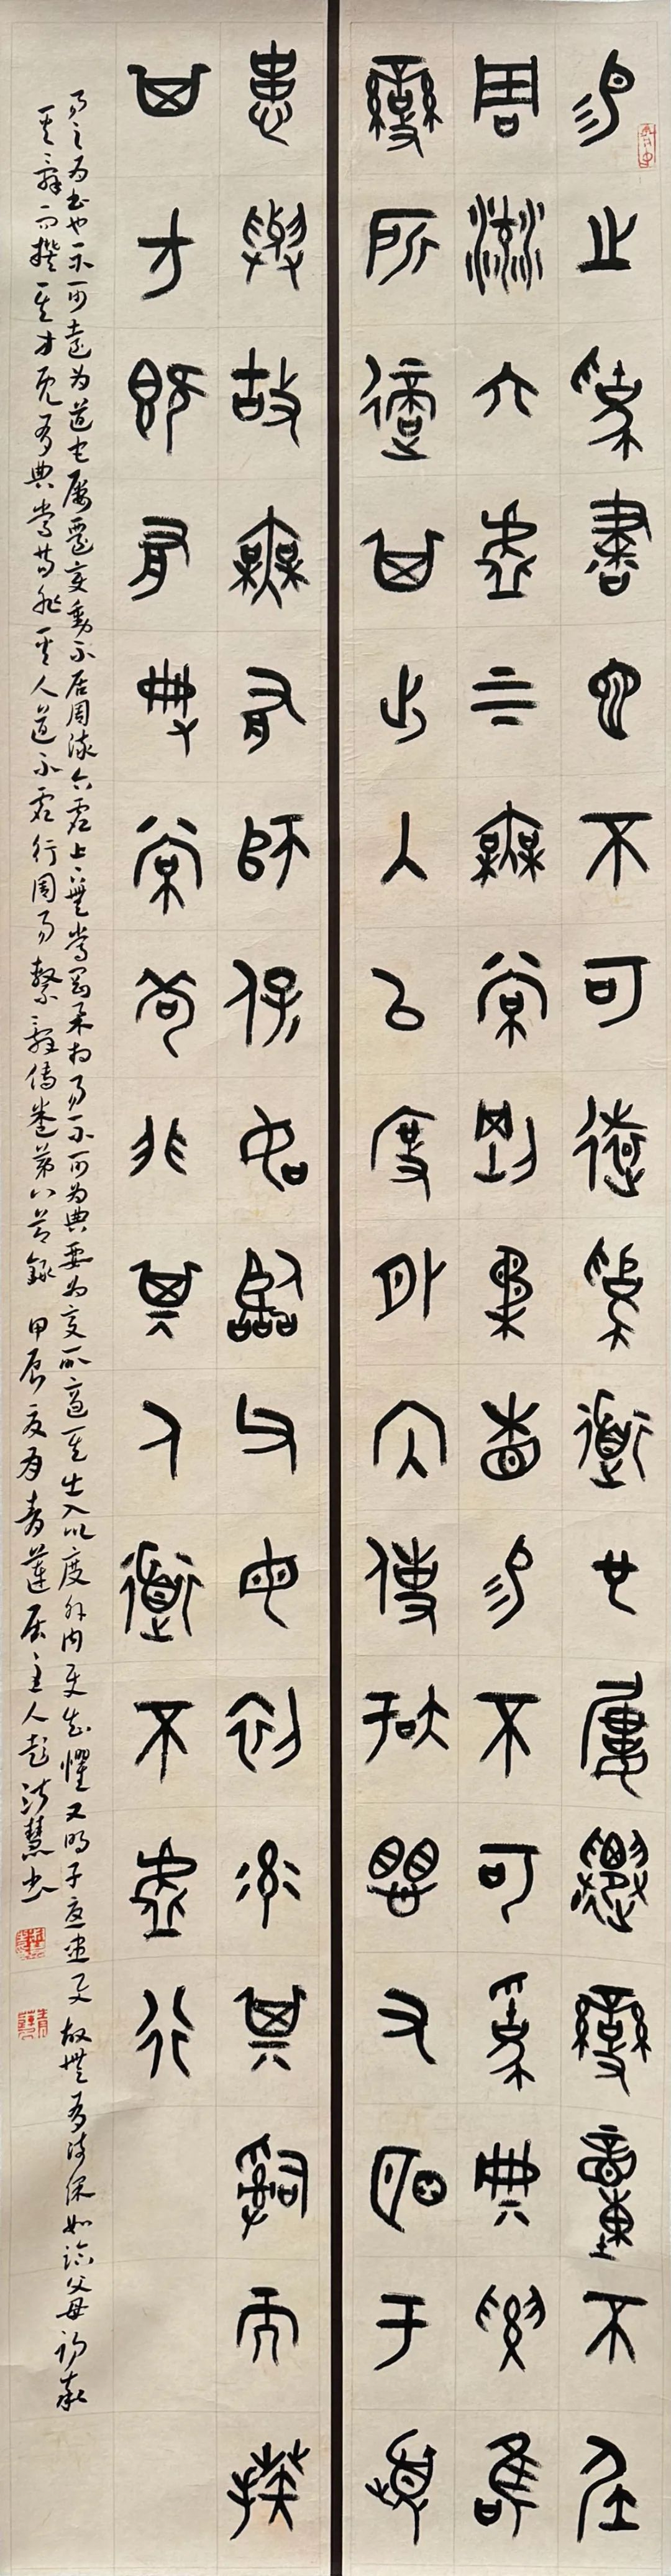 易之為書也不可遠為道也屢遷變動不居
周流六虛上下無常剛柔相易不可為典要唯
變所適其出入以度外內使知懼又明于憂
患與故無有師保如臨父母初率其辭而揆
其方既有典常苟非其人道不虛行
易之為書也不可遠為道也屢遷變動不居周流六虛上下無常剛柔相易不可為典要為變所適其出入以度外內使知懼又明于憂患與故無有師保如臨父母初率
其辭而揆其方既有典常苟非其人道不虛行周易繫辭傳卷第八節錄 甲辰夏月青蓮居主人彭法慧書